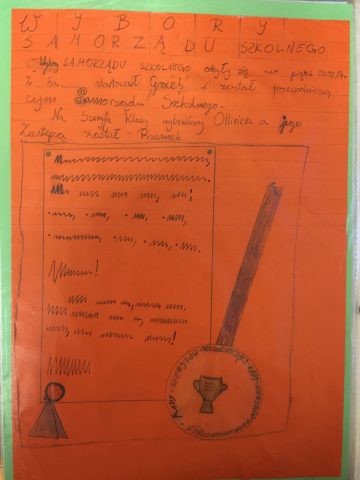 WYBORY
SAMORZĄDU SZKOLNEGO
Wybory SAMORZĄDU SZKOLNEGO odbyły się w piątek
Z 5a startował Grześ i został przewodniczą-
cym Samorządu Szkolnego.
Na Szeryfa klasy wybraliśmy Olliviera a jego
Zastępcą został Przemek